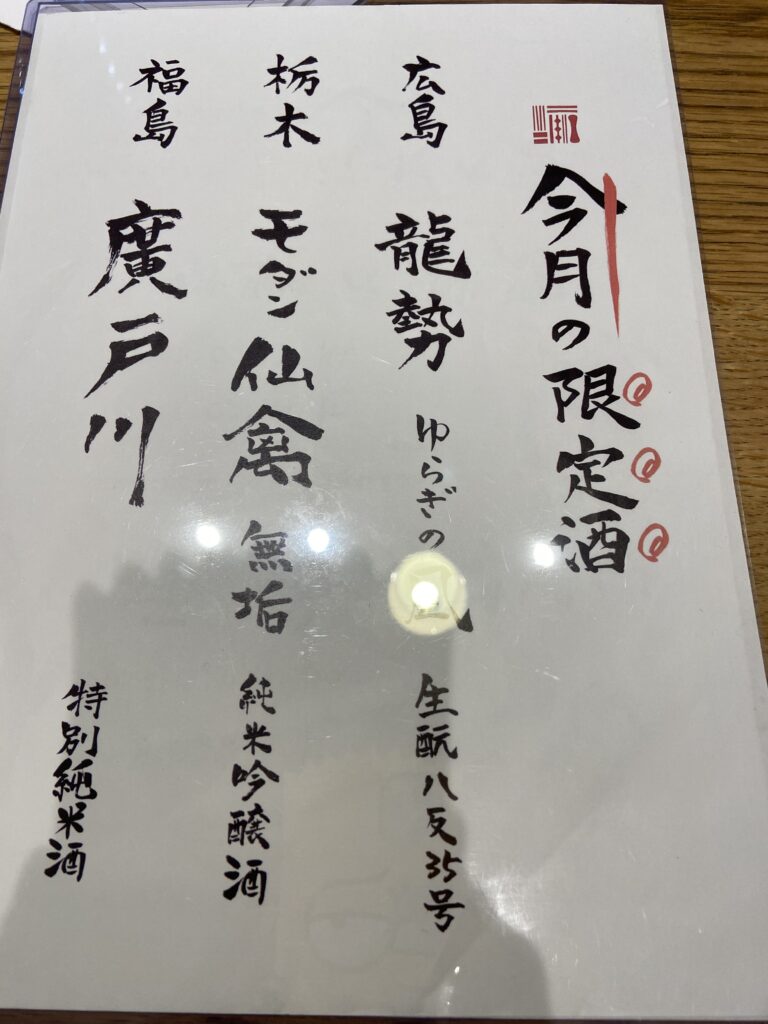 今月の限定酒
広島 龍勢 ゆらぎの 生酛八反35号
栃木 モダン仙禽 無垢 純米吟醸酒
福島 廣戸川 特別純米酒